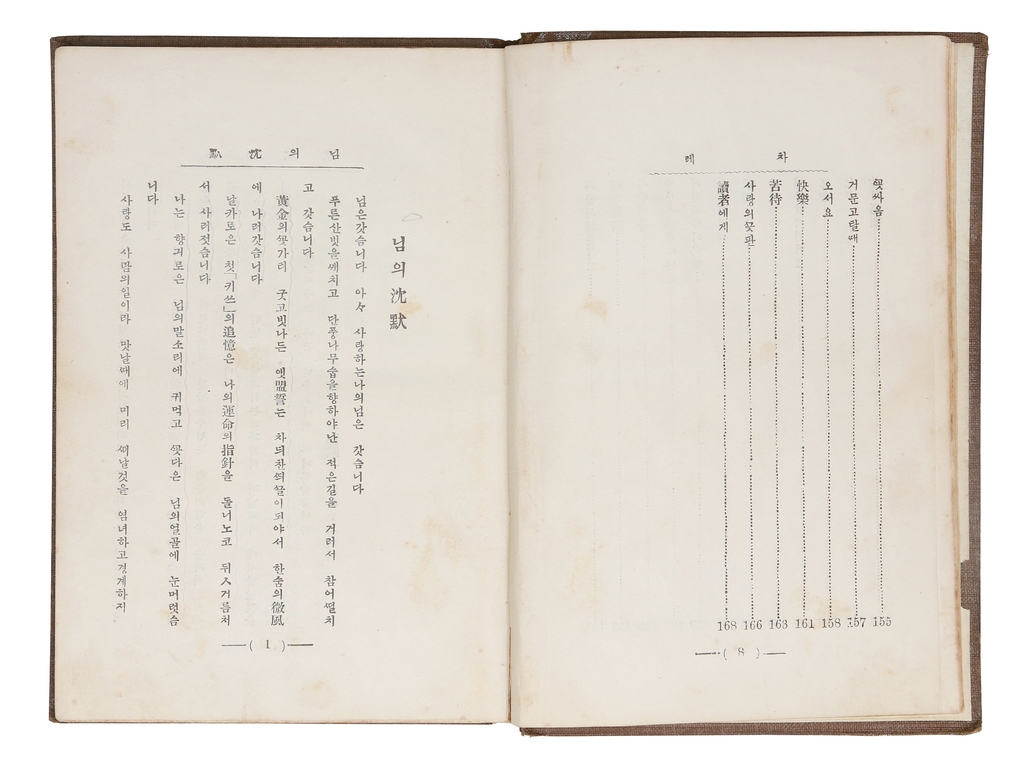 차 례
꽃싸움 155
거문고탈때 157
오서요 158
快樂 161
苦待 163
사랑의끝판 166
讀者에게 168
—( 8 )—
님 의 沈 默
님의沈默
님은갓슴니다 아々 사랑하는나의님은 갓슴니다
푸른산빗을ᄭᅢ치고 단풍나무숩을향하야난 적은길을 거러서 참어ᄯᅥᆯ치
고 갓슴니다
黃金의ᄭᅩᆺ가티 굿고빗나든 옛盟誓는 차듸찬ᄯᅴᄭᅳᆯ이되야서 한숨의微風
에 나러갓슴니다
날카로은 첫「키쓰」의追憶은 나의運命의指針을 돌너노코 뒤ㅅ거름처
서 사러젓슴니다
나는 향긔로은 님의말소리에 귀먹고 ᄭᅩᆺ다은 님의얼골에 눈머럿슴
니다
사랑도 사람의일이라 맛날ᄯᅢ에 미리 ᄯᅥ날것을 염녀하고경계하지
—( 1 )—